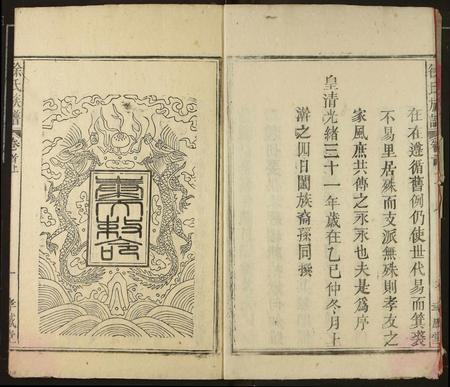 徐氏族譜
在在遵循舊例仍使世代易而箕裘
不易里居殊而支派無殊則孝友之
家風庶共傳之永永也夫是為序
皇清光緒三十一年歲在乙巳仲冬月上
澣之四日闔族裔孫同撰
徐氏族譜
卷首上
一